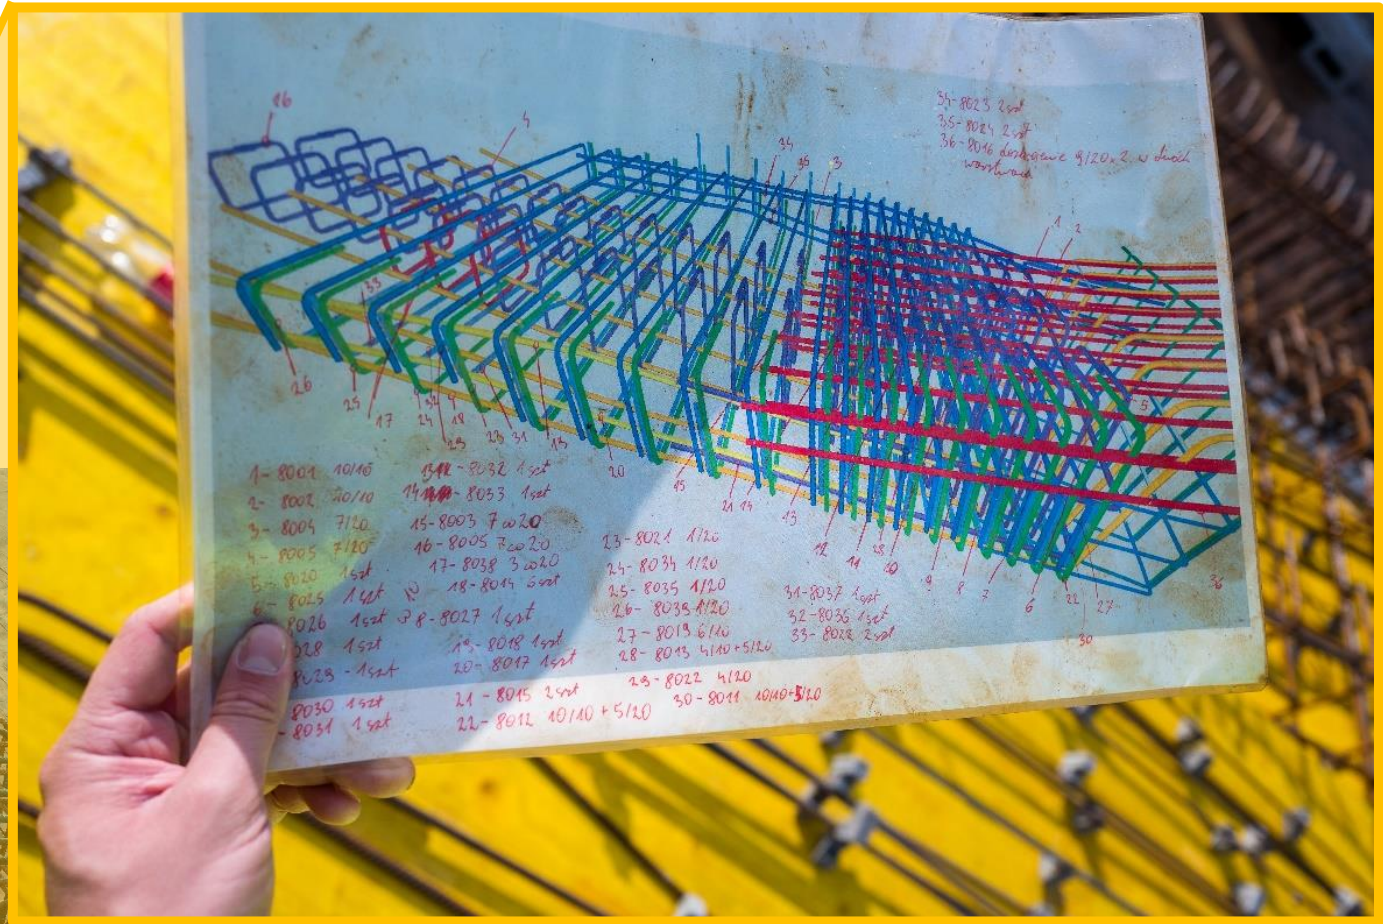 34-8023 2szt
35-8024 2szt
36-8016 9/20x2 w dwóch
warstwach
26
4
34
35
3
1
2
33
26
25
17
24
32
18
29
23
31
19
20
15
21
14
13
12
11
28
10
9
8
7
6
22
27
30
5
36
1- 8001 10/10
2- 8002 10/10
3- 8004 7/20
4- 8005 7/20
5- 8020 1szt
6- 8025 1szt
8026 1szt
028 1szt
8029 - 1szt
8030 1szt
- 8031 1szt
13 - 8032 1szt
14 - 8033 1szt
15-8003 7co20
16-8005 7co20
17-8038 3co20
18-8014 6szt
8-8027 1szt
19-8018 1szt
20- 8017 1szt
21 - 8015 2szt
22- 8012 10/10 + 5/20
23-8021 1/20
24-8034 1/20
25- 8035 1/20
26- 8039 1/20
27- 8019 6/10
28- 8013 4/10+5/20
29-8022 4/20
30-8011 10/10+5/20
31-8037 1szt
32-8036 1szt
33-8028 2szt